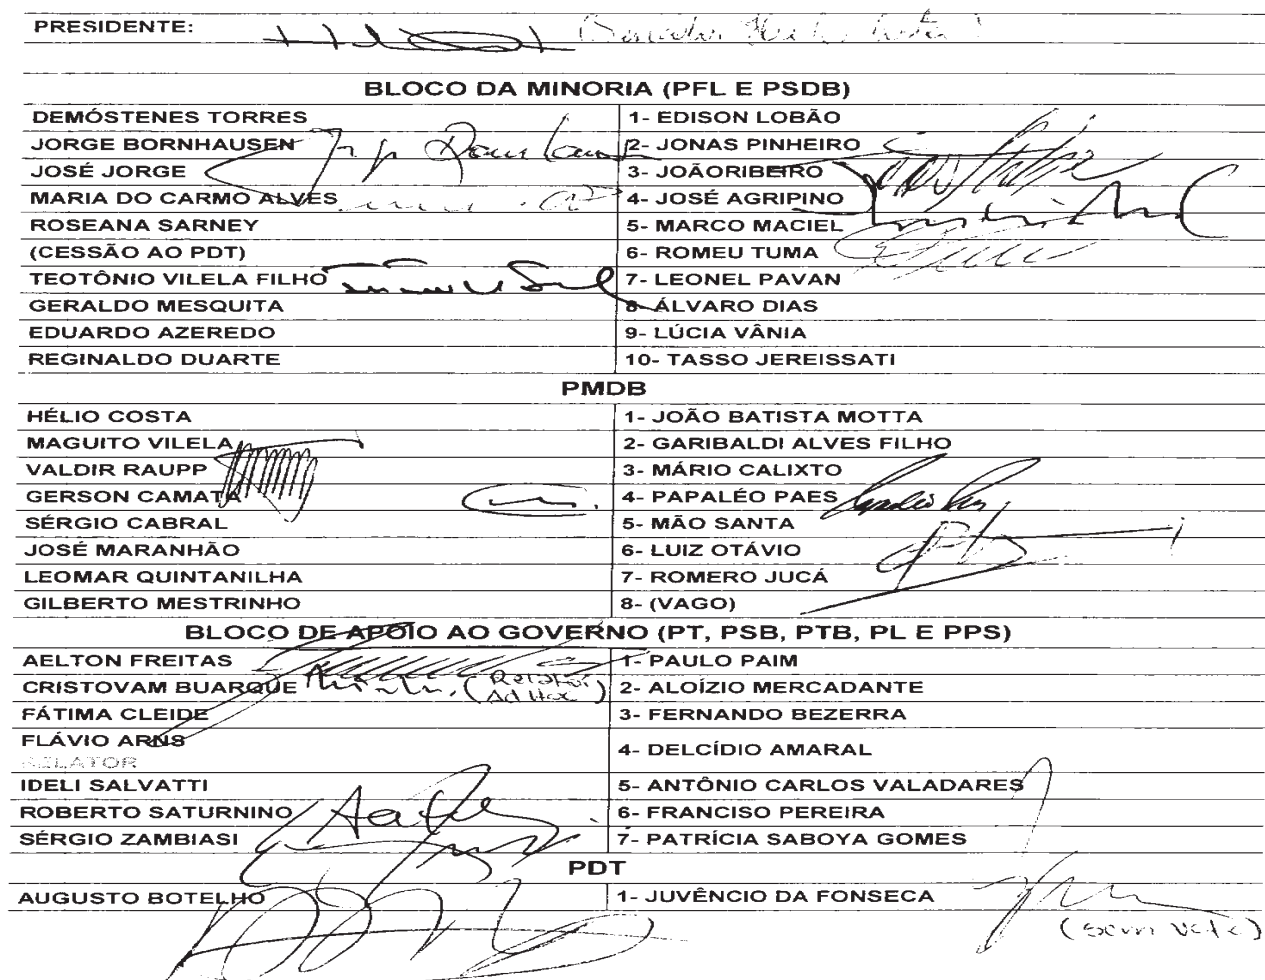 PRESIDENTE: (Senador Hélio Costa)
BLOCO DA MINORIA (PFL E PSDB)
DEMÓSTENES TORRES 1- EDISON LOBÃO
JORGE BORNHAUSEN 2- JONAS PINHEIRO
JOSÉ JORGE 3- JOÃORIBEIRO
MARIA DO CARMO ALVES 4- JOSÉ AGRIPINO
ROSEANA SARNEY 5- MARCO MACIEL
(CESSÃO AO PDT) 6- ROMEU TUMA
TEOTÔNIO VILELA FILHO 7- LEONEL PAVAN
GERALDO MESQUITA 8- ÁLVARO DIAS
EDUARDO AZEREDO 9- LÚCIA VÂNIA
REGINALDO DUARTE 10- TASSO JEREISSATI
PMDB
HÉLIO COSTA 1- JOÃO BATISTA MOTTA
MAGUITO VILELA 2- GARIBALDI ALVES FILHO
VALDIR RAUPP 3- MÁRIO CALIXTO
GERSON CAMATA 4- PAPALÉO PAES
SÉRGIO CABRAL 5- MÃO SANTA
JOSÉ MARANHÃO 6- LUIZ OTÁVIO
LEOMAR QUINTANILHA 7- ROMERO JUCÁ
GILBERTO MESTRINHO 8- (VAGO)
BLOCO DE APOIO AO GOVERNO (PT, PSB, PTB, PL E PPS)
AELTON FREITAS 1- PAULO PAIM
CRISTOVAM BUARQUE (Relator Ad Hoc) 2- ALOÍZIO MERCADANTE
FÁTIMA CLEIDE 3- FERNANDO BEZERRA
FLÁVIO ARNS 4- DELCÍDIO AMARAL
RELATOR
IDELI SALVATTI 5- ANTÔNIO CARLOS VALADARES
ROBERTO SATURNINO 6- FRANCISO PEREIRA
SÉRGIO ZAMBIASI 7- PATRÍCIA SABOYA GOMES
PDT
AUGUSTO BOTELHO 1- JUVÊNCIO DA FONSECA
(sem voto)